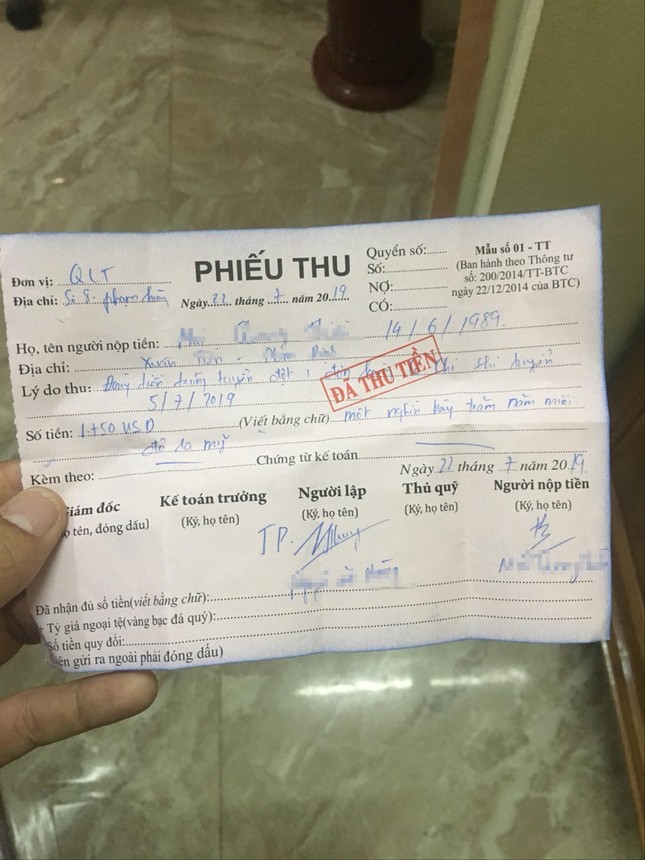 Đơn vị: QLT
PHIẾU THU
Quyển số:
Mẫu số 01 - TT
Địa chỉ: Phạm Hùng
Ngày 22 tháng 7 năm 2019
Số:
(Ban hành theo Thông tư
NỢ:
số: 200/2014/TT-BTC
CÓ:
ngày 22/12/2014 của BTC)
Họ, tên người nộp tiền: 14/6/1989
Địa chỉ: Xuân
Lý do thu: trúng tuyển đợt 1 thi tuyển
ĐÃ THU TIỀN
5/7/2019
Số tiền: 1.750 USD (Viết bằng chữ) một nghìn bảy trăm năm mươi
đô la mỹ
Kèm theo: Chứng từ kế toán
Ngày 22 tháng 7 năm 2019
Giám đốc Kế toán trưởng Người lập Thủ quỹ Người nộp tiền
tên, đóng dấu) (Ký, họ tên) (Ký, họ tên) (Ký, họ tên) (Ký, họ tên)
TP.
Đã nhận đủ số tiền(viết bằng chữ):
+ Tỷ giá ngoại tệ(vàng bạc đá quý):
Số tiền quy đổi:
gửi ra ngoài phải đóng dấu)